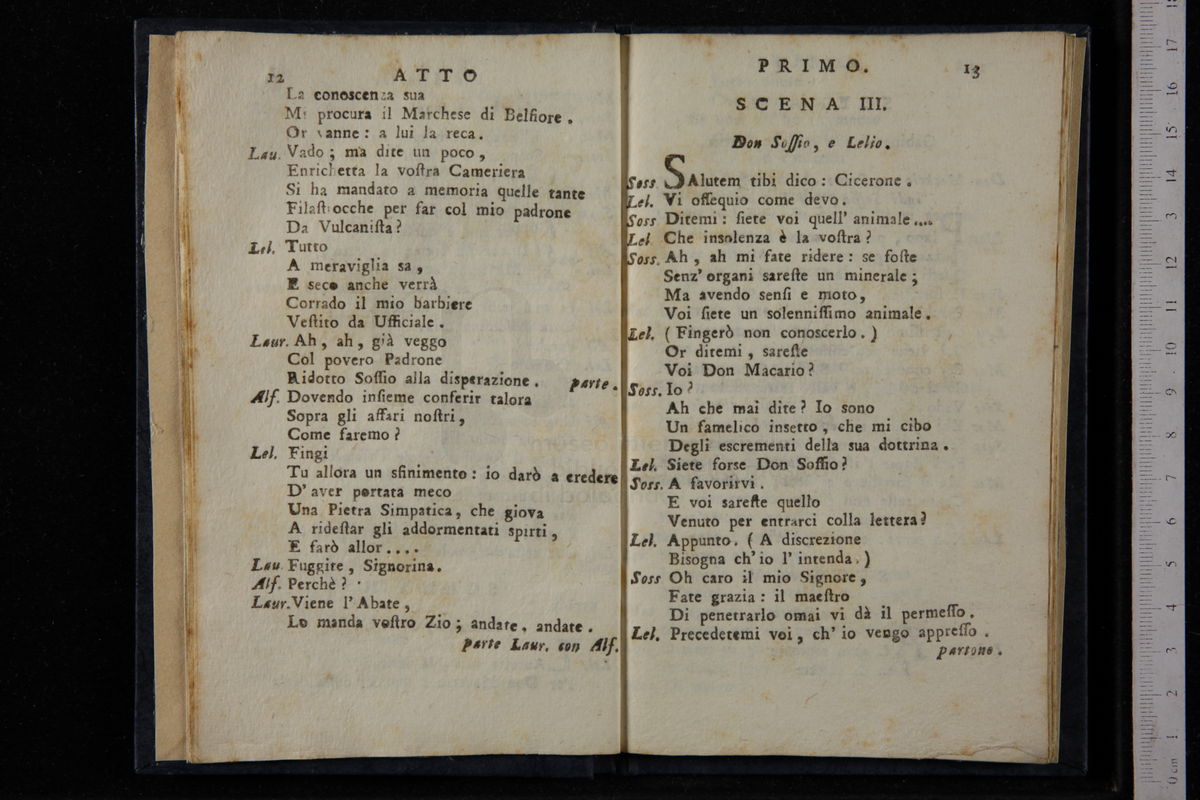 12 ATTO
La conoscenza sua
Mi procura il Marchese di Belfiore.
Or vanne: a lui la reca.
Lau. Vado; ma dite un poco,
Enrichetta la voſtra Cameriera
Si ha mandato a memoria quelle tante
Filaſtrocche per far col mio padrone
Da Vulcaniſta?
Lel. Tutto
A meraviglia sa,
E seco anche verrà
Corrado il mio barbiere
Veſtito da Ufficiale.
Laur. Ah, ah, già veggo
Col povero Padrone
Ridotto Soſſio alla disperazione. parte.
Alf. Dovendo inſieme conferir talora
Sopra gli affari noſtri,
Come faremo?
Lel. Fingi
Tu allora un sfinimento: io darò a credere
D' aver portata meco
Una Pietra Simpatica, che giova
A rideſtar gli addormentati spirti,
E farò allor....
Lau. Fuggite, Signorina.
Alf. Perchè?
Laur. Viene l' Abate,
Lo manda voſtro Zio; andate, andate.
parte Laur. con Alf.
PRIMO. 13
SCENA III.
Don Soſſio, e Lelio.
Soss. SAlutem tibi dico: Cicerone.
Lel. Vi oſſequio come devo.
Soss Ditemi: ſiete voi quell' animale....
Lel Che insolenza è la voſtra?
Soss. Ah, ah mi fate ridere: se foſte
Senz' organi sareſte un minerale;
Ma avendo senſi e moto,
Voi ſiete un solenniſſimo animale.
Lel. (Fingerò non conoscerlo.)
Or ditemi, sareſte
Voi Don Macario?
Soss. Io?
Ah che mai dite? Io sono
Un famelico insetto, che mi cibo
Degli escrementi della sua dottrina.
Lel. Siete forse Don Soſſio?
Soss. A favorirvi.
E voi sareſte quello
Venuto per entrarci colla lettera?
Lel. Appunto. (A discrezione
Bisogna ch' io l' intenda.)
Soss Oh caro il mio Signore,
Fate grazia: il maeſtro
Di penetrarlo omai vi dà il permeſſo.
Lel. Precedetemi voi, ch' io vengo appreſſo.
partono.
0 cm 1 2 3 4 5 6 7 8 9 10 11 12 13 14 15 16 17 18